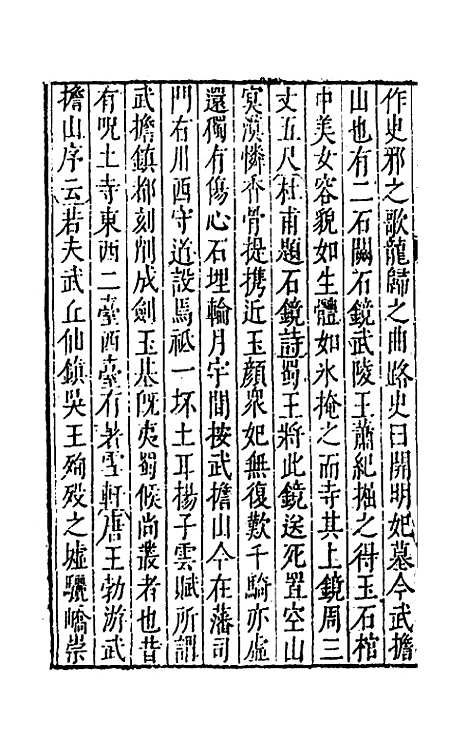 作史邪之歌龍歸之曲路史曰開明妃墓今武擔
山也有二石闕石鏡武陵王蕭紀掘之得玉石棺
中美女容貌如生體如氷掩之而寺其上鏡周三
丈五尺杜甫題石鏡詩蜀王將此鏡送死置空山
㝠漠憐香骨提携近玉顔衆妃無復歎千騎亦虛
還獨有傷心石埋輪月宇間按武擔山今在藩司
門右川西守道設焉祗一坏土耳楊子雲賦所謂
武擔鎮都刻削成劍玉基旣夷蜀候尚叢者也昔
有咒土寺東西二臺西臺有老雪軒唐王勃游武
擔山序云若夫武丘仙鎮吳王殉殁之墟驪嶠崇